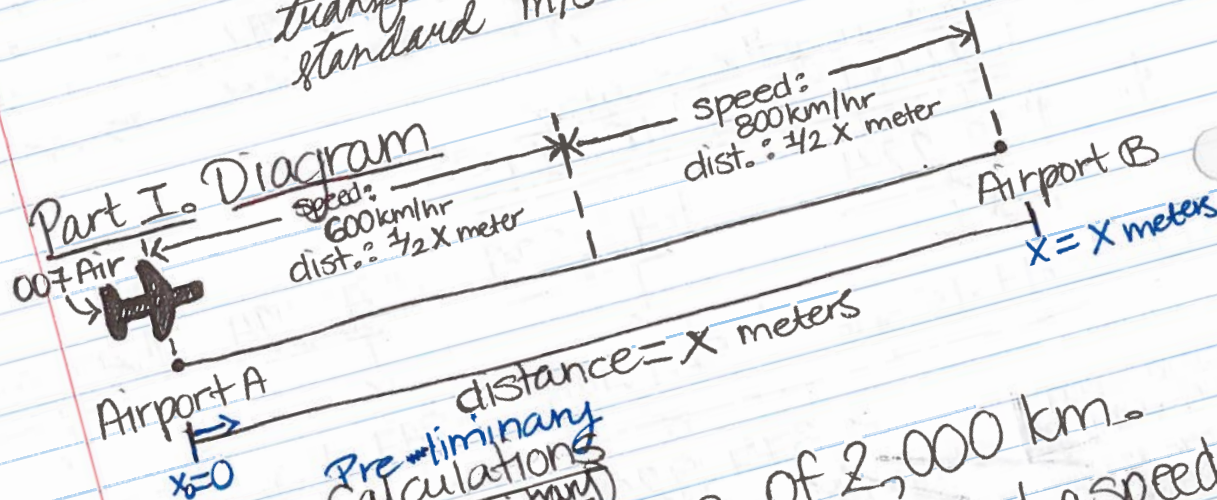 standard m/s
Part I. Diagram
speed:
800km/hr
dist.: 1/2 X meter
speed:
600km/hr
dist.: 1/2 X meter
007 Air
Airport B
X = X meters
Airport A
distance = X meters
X₀=0
Pre-liminary
calculations
of 2,000 km.
speed